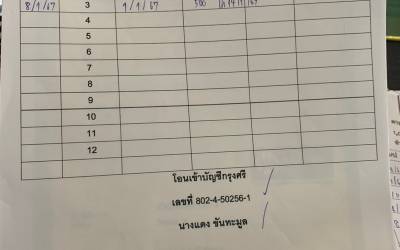 8/1/67 3 1/1/67 500
4
5
6
7
8
9
10
11
12
โอนเข้าบัญชีกรุงศรี
เลขที่ 802-4-50256-1
นางแดง ขันทะมูล